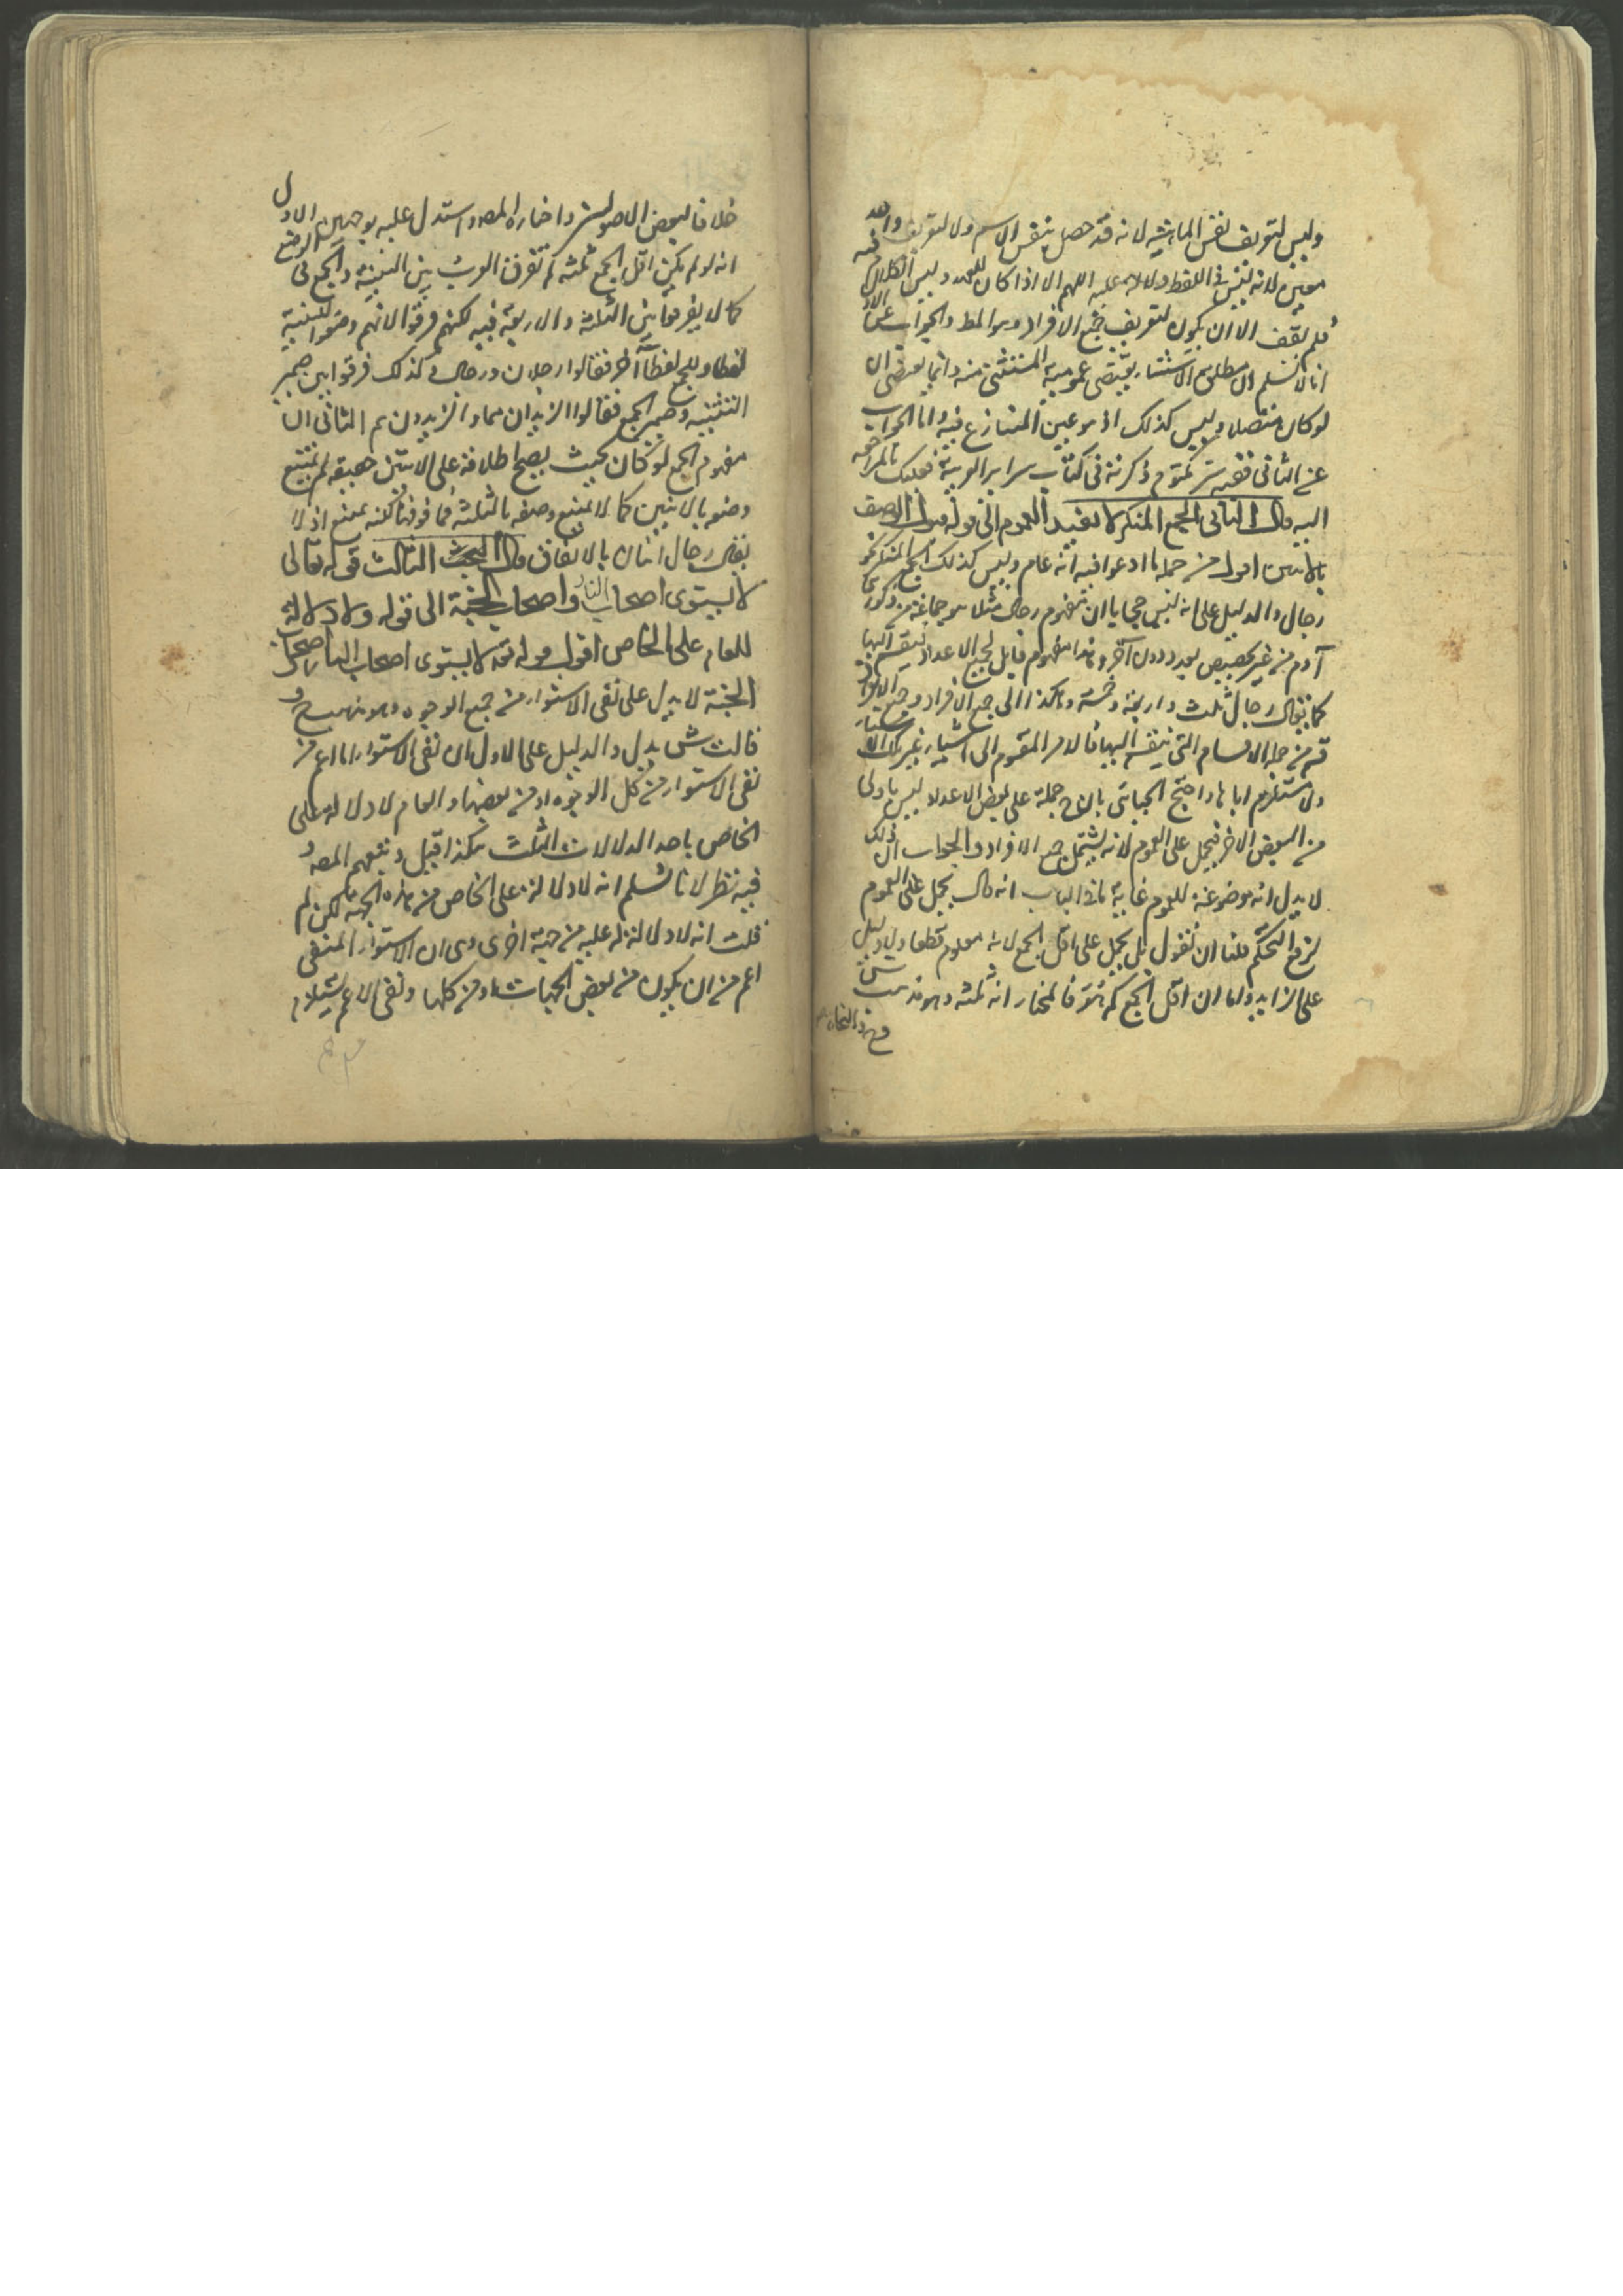 وليس لتعريف نفس الماهية لانه قد حصل بنفس الاسم ولا لتعريف واحد
معين لانه ليس في اللفظ دلالة عليه اللهم الا اذا كان للعهد وليس الكلام فيه
فلم يبق الا ان يكون لتعريف جميع الافراد وهو المط والجواب عن الاول
انا لا نسلم ان مطلق الاستثناء يقتضي عمومية المستثنى منه وانما يقتضي ان
لو كان متصلا وليس كذلك اذ هو عين المتنازع فيه واما الجواب
عن الثاني ففيه سر مكتوم ذكرته في كتاب سراير العربية فعليك بالمراجعة
اليه قال الثاني الجمع المنكر لا يفيد العموم الى قوله الوصف
بالاثنين اقول من جملة ما ادعوا فيه انه عام وليس كذلك الجمع المنكر نحو
رجال والدليل على انه ليس مفهوم رجال مثلا هو جماعة من ذكور بني
آدم من غير تخصيص بعدد دون آخر وهذا مفهوم قابل لجميع الاعداد ينقسم اليها
كما يقال رجال ثلثة واربعة وخمسة وهكذا الى جميع الافراد وجميع الافراد
قسم من جملة الاقسام التي ينقسم اليها فالامر المقسوم الى اشياء غير تلك الاشياء
ولا مستلزم اياها واحتج الجبائي بان حمله على بعض الاعداد ليس باولى
من البعض الاخر فيحمل على العموم لانه يشتمل جميع الافراد والجواب ان ذلك
لا يدل انه موضوعة للعموم غاية ما في الباب انه قال يحمل على العموم
لرفع التحكم قلنا ان نقول بل يحمل على اقل الجمع لانه معلوم قطعا ولا دليل
على الزايد واما ان اقل الجمع كم هو فالمختار انه ثلثة وهو مذهب
خلافا لبعض الاصوليين واختاره المصه واستدل عليه بوجهين الاول
انه لو لم يكن اقل الجمع ثلثه لم تفرق العرب بين التثنية والجمع في الوضع
كما لا يفرقوا بين الثلثة والاربعة فيه لكنهم فرقوا لانهم وضعوا للتثنية
لفظا وللجمع لفظا آخر فقالوا رجلان ورجال وكذلك فرقوا بين ضمير
التثنية وضمير الجمع فقالوا الزيدان هما والزيدون هم الثاني ان
مفهوم الجمع لو كان بحيث يصح اطلاقه على الاثنين حقيقة لم يمتنع
وصفه بالاثنين كما لا يمتنع وصفه بالثلثة فما فوقها لكنه ممتنع اذ لا
يقال رجال اثنان بالاتفاق قال البحث الثالث قوله تعالى
لا يستوى اصحاب النار واصحاب الجنة الى قوله ولا دلالة
للعام على الخاص اقول قوله تعه لا يستوى اصحاب النار واصحاب
الجنة لا يدل على نفى الاستواء من جميع الوجوه وهو مذهب ح و
قالت ش يدل والدليل على الاول ان نفى الاستواء اما اعم من
نفى الاستواء من كل الوجوه او من بعضها والعام لا دلالة على
الخاص باحد الدلالات الثلث هكذا قيل وتبعهم المصه و
فيه نظر لانا نسلم انه لا دلالة على الخاص من هذه الجهة لكن لم
قلت انه لا دلالة له عليه من جهة اخرى وهى ان الاستواء المنفى
اعم من ان يكون من بعض الجهات او من كلها ونفى الاعم يستلزم